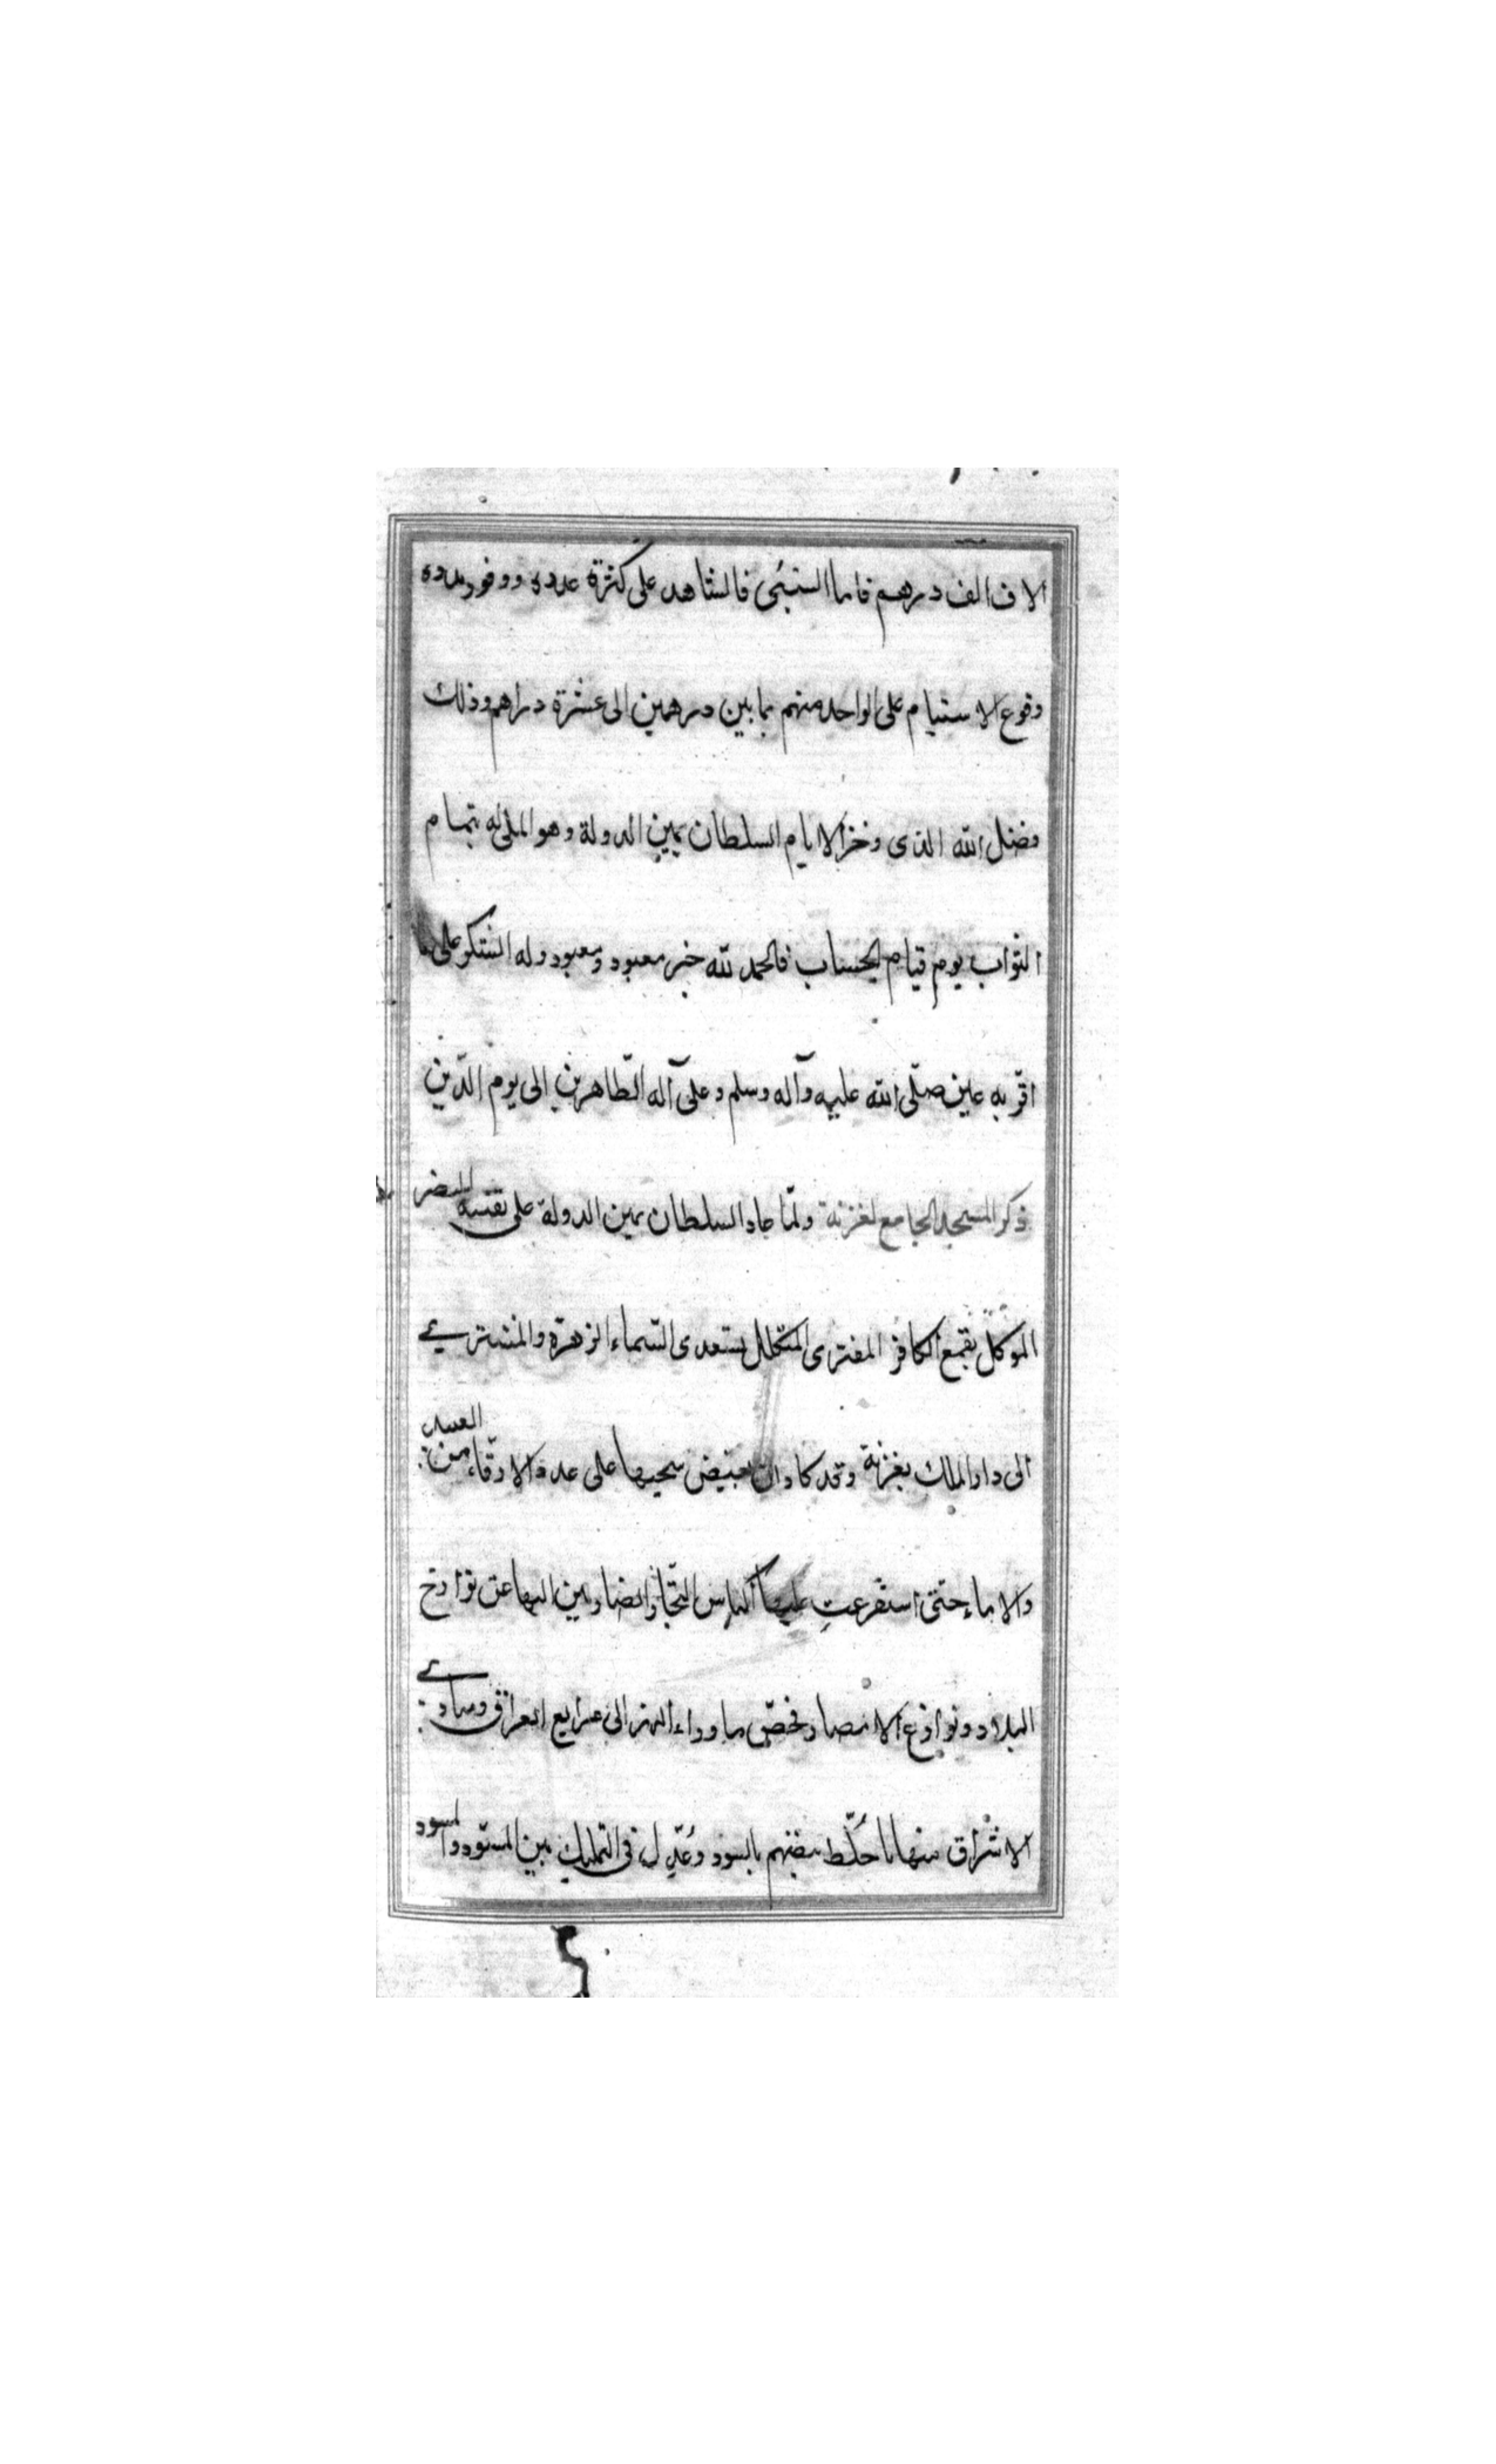 الاف الف درهم فاما السبی فالشاهد علی کثرة عدده ووفور مدده
وقوع الاستیام علی الواحد منهم بما بین درهمین الی عشرة دراهم وذلك
وفضل الله الذی ذخر لایام السلطان یمین الدولة وهو الملی له بتمام
الثواب یوم قیام الحساب فالحمد لله خیر معبود ومعبود وله الشکر علی ما
اقر به عین صلّی الله علیه وآله وسلم وعلی آله الطّاهرین الی یوم الدّین
ذکر المسجد الجامع لغزنة ولمّا جاد السلطان یمین الدولة علی نقشه المضر
الموکل بقمع الکافر المفتری یستعدی السّماء الزهرة والمشتری
الی دار الملك بغزنة وقد کاد ان علی عدد الارقاء من العبید
والاماء حتی استفرعت علیها اکیاس التّجار الیها عن نوازح
البلاد ونوازع الامصار فخصّ ما وراء النهر الی العراق ومبادی
الاشراق منها ما خلّط بیضهم بالسود وعُدّل فی التملیك بین المسوّد والمسود